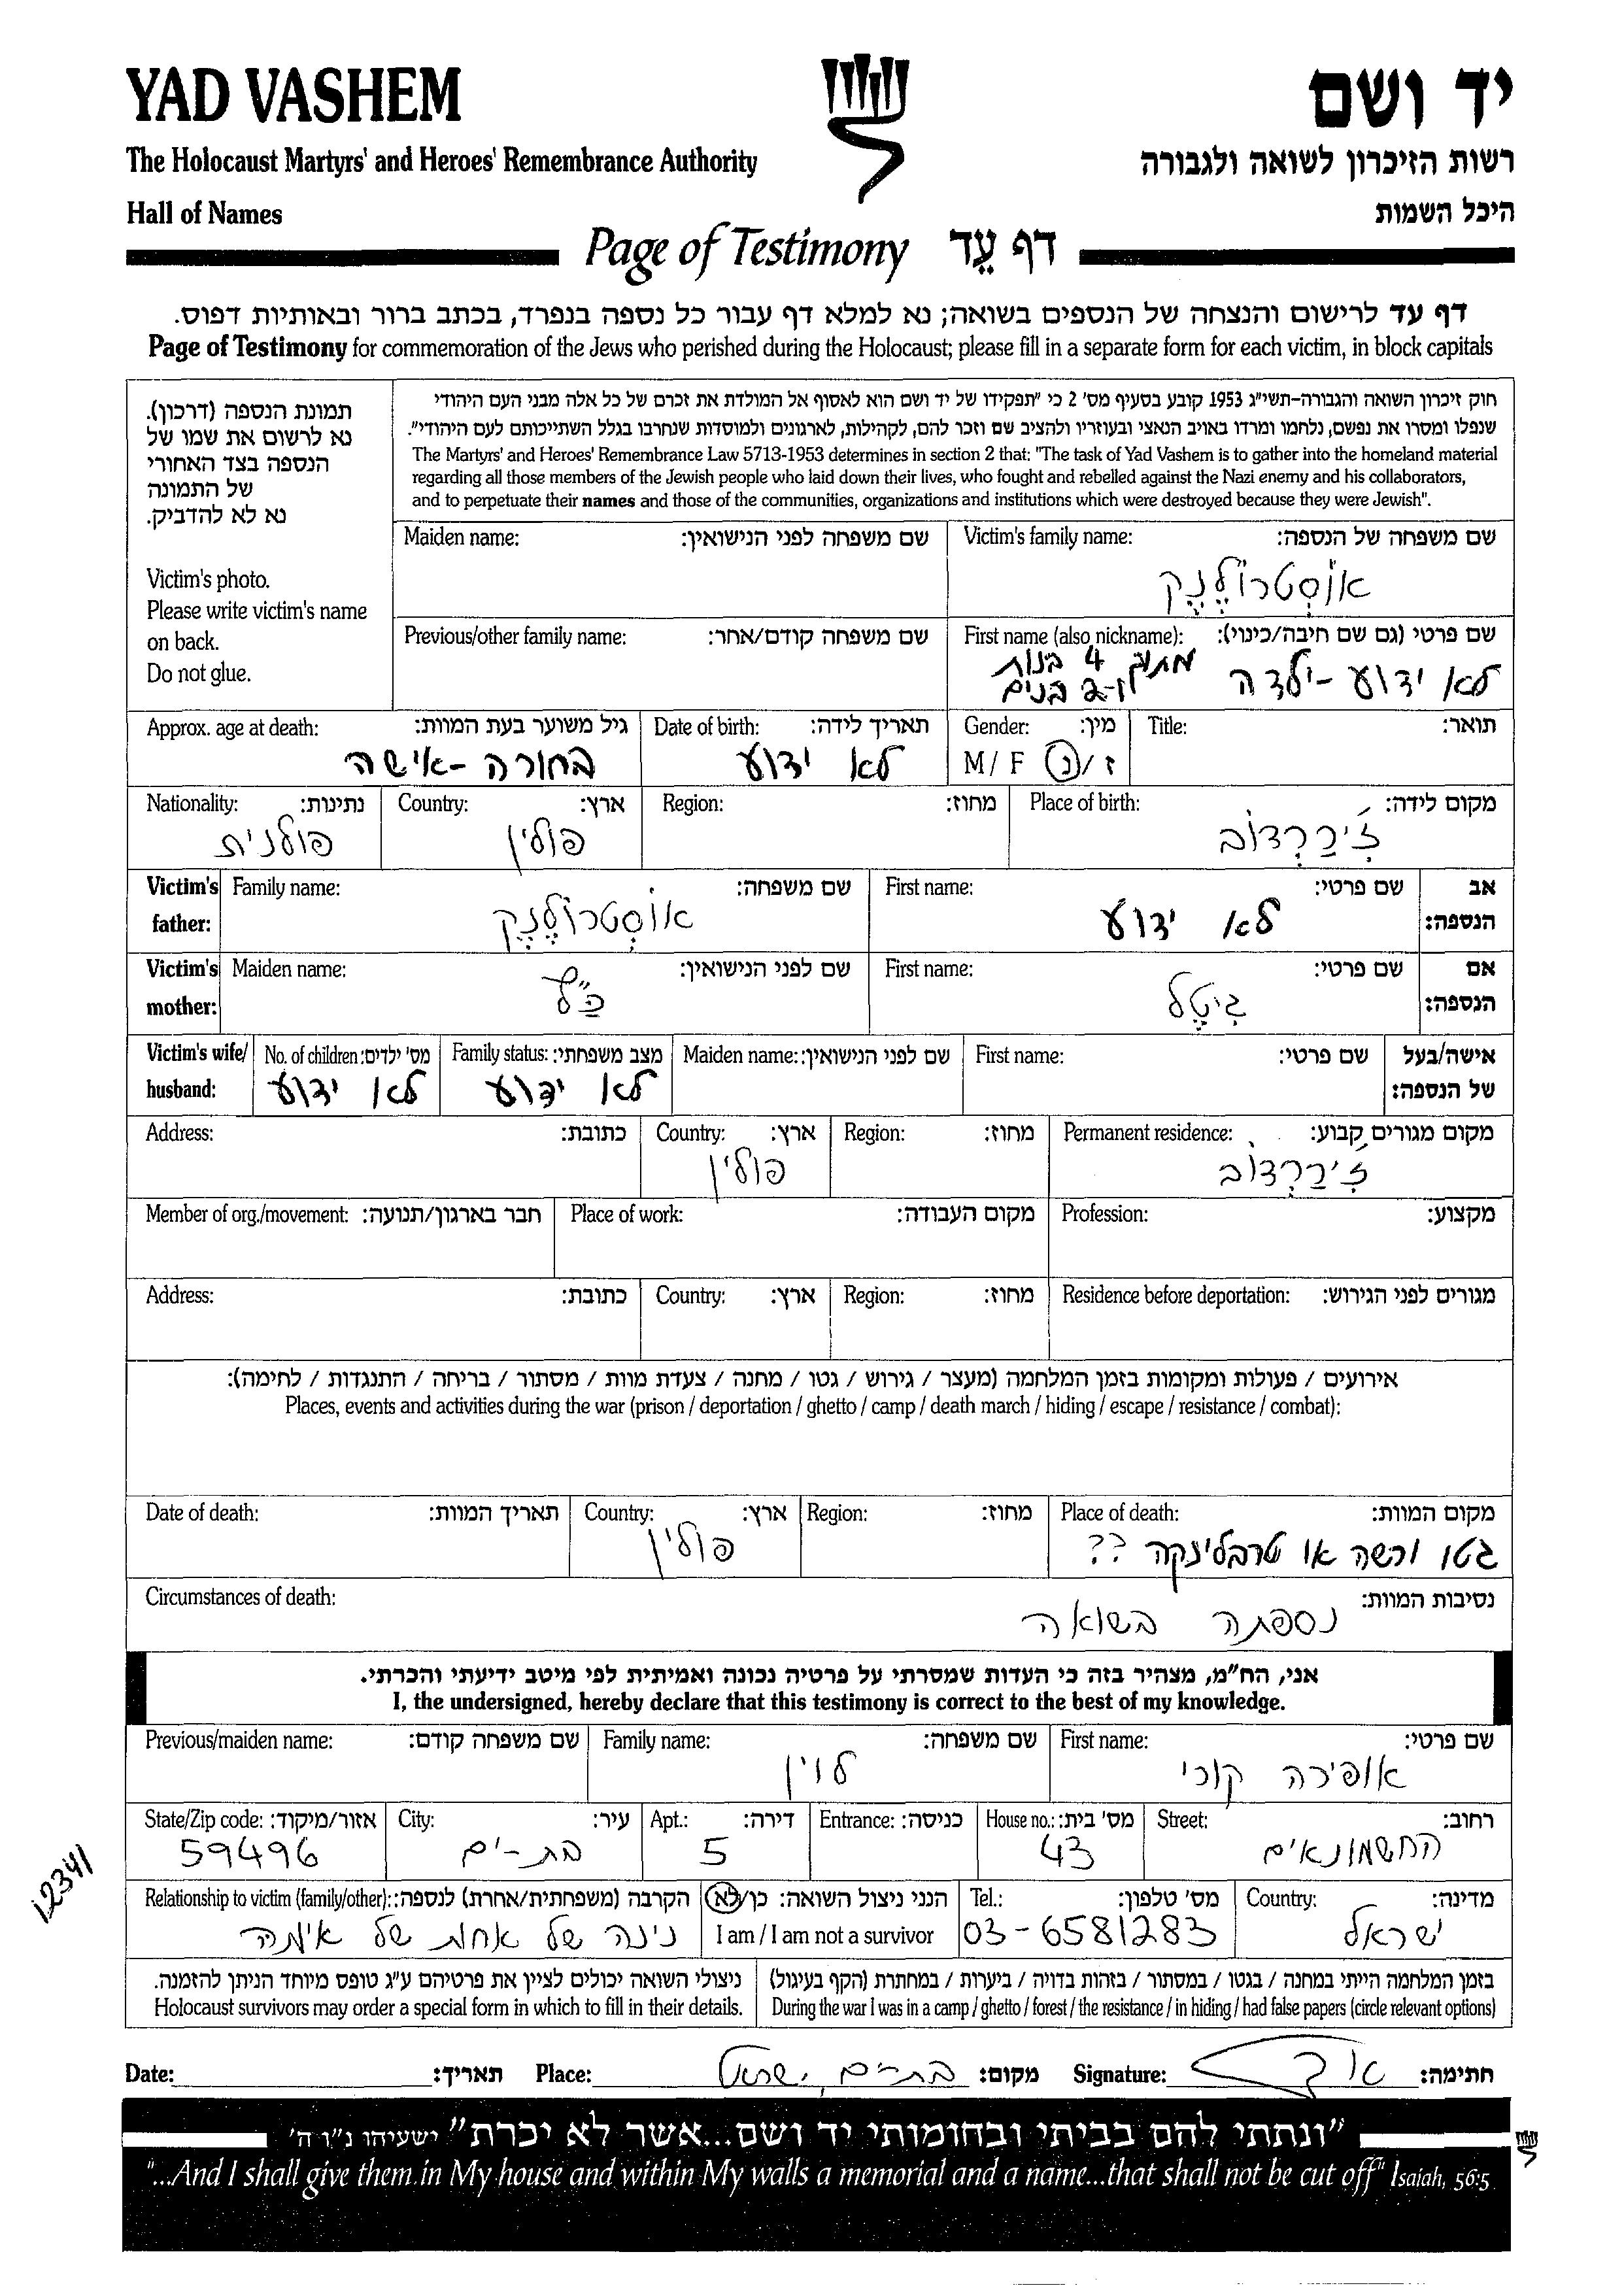 YAD VASHEM
יד ושם
The Holocaust Martyrs' and Heroes' Remembrance Authority
רשות הזיכרון לשואה ולגבורה
Hall of Names
היכל השמות
Page of Testimony דף עֵד
דף עד לרישום והנצחה של הנספים בשואה; נא למלא דף עבור כל נספה בנפרד, בכתב ברור ובאותיות דפוס.
Page of Testimony for commemoration of the Jews who perished during the Holocaust; please fill in a separate form for each victim, in block capitals
תמונת הנספה (דרכון).
נא לרשום את שמו של
הנספה בצד האחורי
של התמונה
נא לא להדביק.
Victim's photo.
Please write victim's name
on back.
Do not glue.
חוק זיכרון השואה והגבורה-תשי"ג 1953 קובע בסעיף מס' 2 כי "תפקידו של יד ושם הוא לאסוף אל המולדת את זכרם של כל אלה מבני העם היהודי
שנפלו ומסרו את נפשם, נלחמו ומרדו באויב הנאצי ובעוזריו ולהציב שם וזכר להם, לקהילות, לארגונים ולמוסדות שנחרבו בגלל השתייכותם לעם היהודי".
The Martyrs' and Heroes' Remembrance Law 5713-1953 determines in section 2 that: "The task of Yad Vashem is to gather into the homeland material
regarding all those members of the Jewish people who laid down their lives, who fought and rebelled against the Nazi enemy and his collaborators,
and to perpetuate their names and those of the communities, organizations and institutions which were destroyed because they were Jewish".
Maiden name: שם משפחה לפני הנישואין:
Victim's family name: שם משפחה של הנספה:
אוֹסְטרוֹלֶנְק
Previous/other family name: שם משפחה קודם/אחר:
First name (also nickname): שם פרטי (גם שם חיבה/כינוי):
לא ידוע - ילדה מתוך 4 בנות
ו-2 בנים
Approx. age at death: גיל משוער בעת המוות:
בחורה - אישה
Date of birth: תאריך לידה:
לא ידוע
Gender: מין:
M / F ז / נ
Title: תואר:
Nationality: נתינות:
פולנית
Country: ארץ:
פולין
Region: מחוז:
Place of birth: מקום לידה:
זִ'ירַרְדוֹב
Victim's father: Family name: שם משפחה:
אוֹסְטרוֹלֶנְק
First name: שם פרטי:
לא ידוע
אב הנספה:
Victim's mother: Maiden name: שם לפני הנישואין:
First name: שם פרטי:
גיטֶל
אם הנספה:
Victim's wife/ husband: No. of children: מס' ילדים:
לא ידוע
Family status: מצב משפחתי:
לא ידוע
Maiden name: שם לפני הנישואין:
First name: שם פרטי:
אישה/בעל של הנספה:
Address: כתובת:
Country: ארץ:
פולין
Region: מחוז:
Permanent residence: מקום מגורים קבוע:
זִ'ירַרְדוֹב
Member of org./movement: חבר בארגון/תנועה:
Place of work: מקום העבודה:
Profession: מקצוע:
Address: כתובת:
Country: ארץ:
Region: מחוז:
Residence before deportation: מגורים לפני הגירוש:
אירועים / פעולות ומקומות בזמן המלחמה (מעצר / גירוש / גטו / מחנה / צעדת מוות / מסתור / בריחה / התנגדות / לחימה):
Places, events and activities during the war (prison / deportation / ghetto / camp / death march / hiding / escape / resistance / combat):
Date of death: תאריך המוות:
Country: ארץ:
פולין
Region: מחוז:
Place of death: מקום המוות:
גטו ורשה או טרבלינקה ??
Circumstances of death: נסיבות המוות:
נספתה בשואה
אני, הח"מ, מצהיר בזה כי העדות שמסרתי על פרטיה נכונה ואמיתית לפי מיטב ידיעתי והכרתי.
I, the undersigned, hereby declare that this testimony is correct to the best of my knowledge.
Previous/maiden name: שם משפחה קודם:
Family name: שם משפחה:
לוין
First name: שם פרטי:
אופירה קורי
State/Zip code: אזור/מיקוד:
59496
City: עיר:
בת-ים
Apt.: דירה:
5
Entrance: כניסה:
House no.: מס' בית:
43
Street: רחוב:
החשמונאים
12341
Relationship to victim (family/other): הקרבה (משפחתית/אחרת) לנספה:
נינה של אחות של אימה
הנני ניצול השואה: כן/לא
I am / I am not a survivor
Tel.: מס' טלפון:
03-6581283
Country: מדינה:
ישראל
ניצולי השואה יכולים לציין את פרטיהם ע"ג טופס מיוחד הניתן להזמנה.
Holocaust survivors may order a special form in which to fill in their details.
בזמן המלחמה הייתי במחנה / בגטו / במסתור / בזהות בדויה / ביערות / במחתרת (הקף בעיגול)
During the war I was in a camp / ghetto / forest / the resistance / in hiding / had false papers (circle relevant options)
Date: תאריך: Place: בת-ים, ישראל מקום: Signature: חתימה:
"ונתתי להם בביתי ובחומותי יד ושם...אשר לא יכרת" ישעיהו נ"ו ה'
"...And I shall give them in My house and within My walls a memorial and a name...that shall not be cut off" Isaiah, 56:5